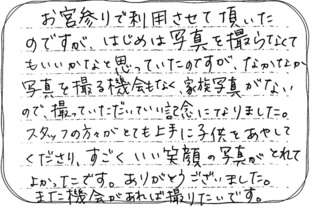 お宮参りで利用させて頂いた
のですが、はじめは写真を撮らなくて
もいいかなと思っていたのですが、なかなか
写真を撮る機会もなく、家族写真がない
ので、撮っていただいていい記念になりました。
スタッフの方々がとても上手に子供をあやして
くださり、すごくいい笑顔の写真がとれて
よかったです。ありがとうございました。
また機会があれば撮りたいです。